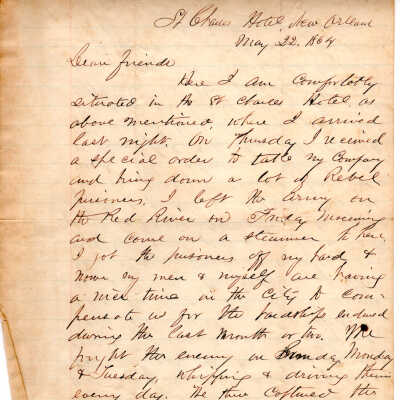 St Charles Hotel New Orleans
May 22. 1864
Dear friends
Here I am comfortbly
situated in the St Charles Hotel as
above mentioned, where I arrived
last night. On Thursday I received
a special order to take my company
and bring down a lot of Rebel
prisoners. I left the army on
the Red River on Friday morning
and come on a steamer to here.
I got the prisoners off my hands &
now my men & myself are having
a nice time in the City to com-
pensate us for the hardships endured
during the last month or two. We
fought the enemy on Sunday Monday
& Tuesday, whipping & driving them
every day. We have captured this